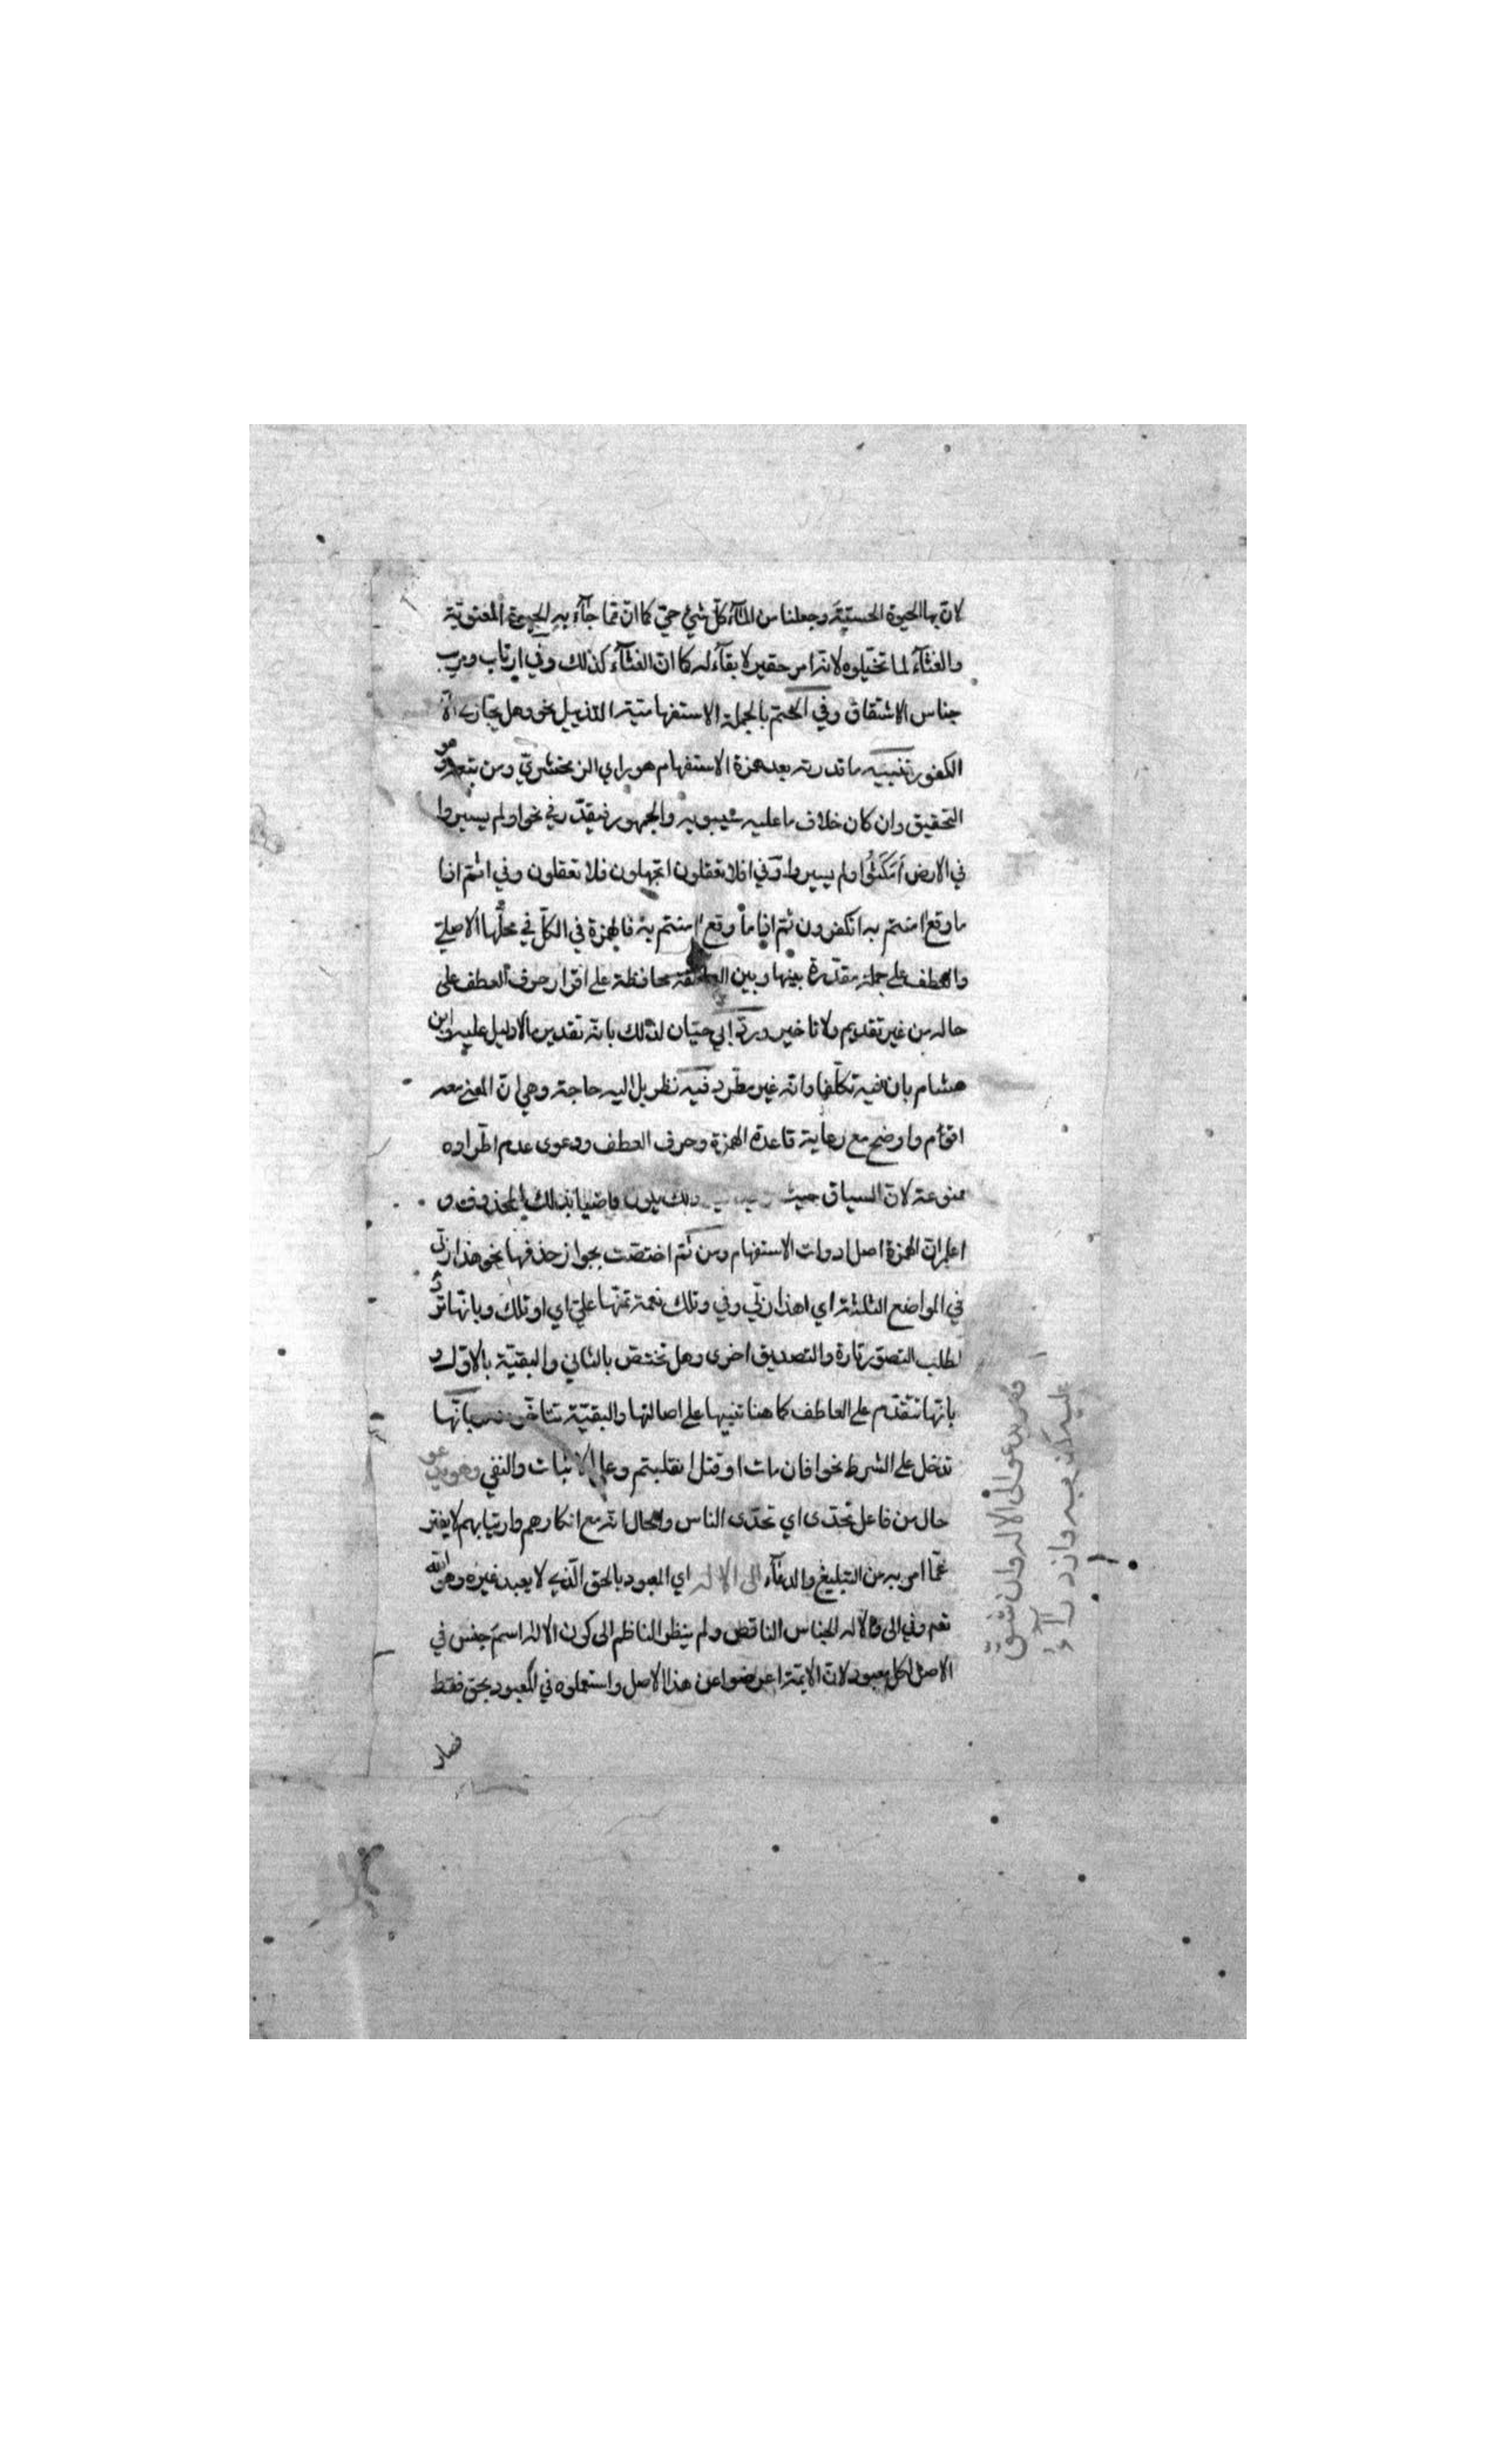 لان بها الحيوة الحسية وجعلنا من المآء كل شئ حي كما ان ما جآء به الحيوة المعنوية
والغثآء لما تخيلوه لانه امر حقير لا بقآء له كما ان الغثآء كذلك وفي ارتاب ومريب
جناس الاشتقاق وفي الختم بالجملة الاستفهامية التذييل نحو وهل يجازى الا
الكفور تنبيه ما قدرته بعد همزة الاستفهام هو براي الزمخشري ومن تبعه وهو
التحقيق وان كان خلاف ما عليه سيبويه والجمهور فيقدر في نحو اولم يسيروا
في الارض أمكثوا ولم يسيروا وفي افلا تعقلون اتجهلون فلا تعقلون وفي اثم اذا
ما وقع امنتم به اتكفرون ثم اذا ما وقع امنتم به فالهمزة في الكل في محلها الاصلي
والعطف على جملة مقدرة بينها وبين العاطف محافظة على اقرار حرف العطف على
حاله من غير تقديم ولا تاخير ورد ابي حيان لذلك بانه تقدير ما لا دليل عليه وابن
هشام بان فيه تكلفا وانه غير مطرد فيه نظر بل اليه حاجة وهي ان المعنى معه
اقوم واوضح مع رعاية قاعدة الهمزة وحرف العطف ودعوى عدم اطراده
ممنوعة لان السياق حيث ذلك يكون قاضيا بذلك المحذوف و
اعلم ان الهمزة اصل ادوات الاستفهام ومن ثم اختصت بجواز حذفها نحو هذا ربي
في المواضع الثلثة اي اهذا ربي وفي وتلك نعمة تمنها علي اي او تلك وبانها ترد
لطلب التصور تارة والتصديق اخرى وهل تختص بالثاني والبقية بالاول و
بانها تتقدم على العاطف كما هنا تنبيها على اصالتها والبقية تتاخر عنه وبانها
تدخل على الشرط نحو افان مات او قتل انقلبتم وعلى الاثبات والنفي وهو يدعو
حال من فاعل تحدى اي تحدى الناس والحال انه مع انكارهم وارتيابهم لا يفتر
عما امر به من التبليغ والدعآء الى الاله اي المعبود بالحق الذي لا يعبد غيره وهو الله
نعم وفي الى والاله الجناس الناقص ولم ينظر الناظم الى كون الاله اسم جنس في
الاصل لكل معبود لان الايمة اعرضوا عن هذا الاصل واستعملوه في المعبود بحق فقط
فصار
وهو يدعو الى الاله وان شق
عليه كفر به وازدرآء